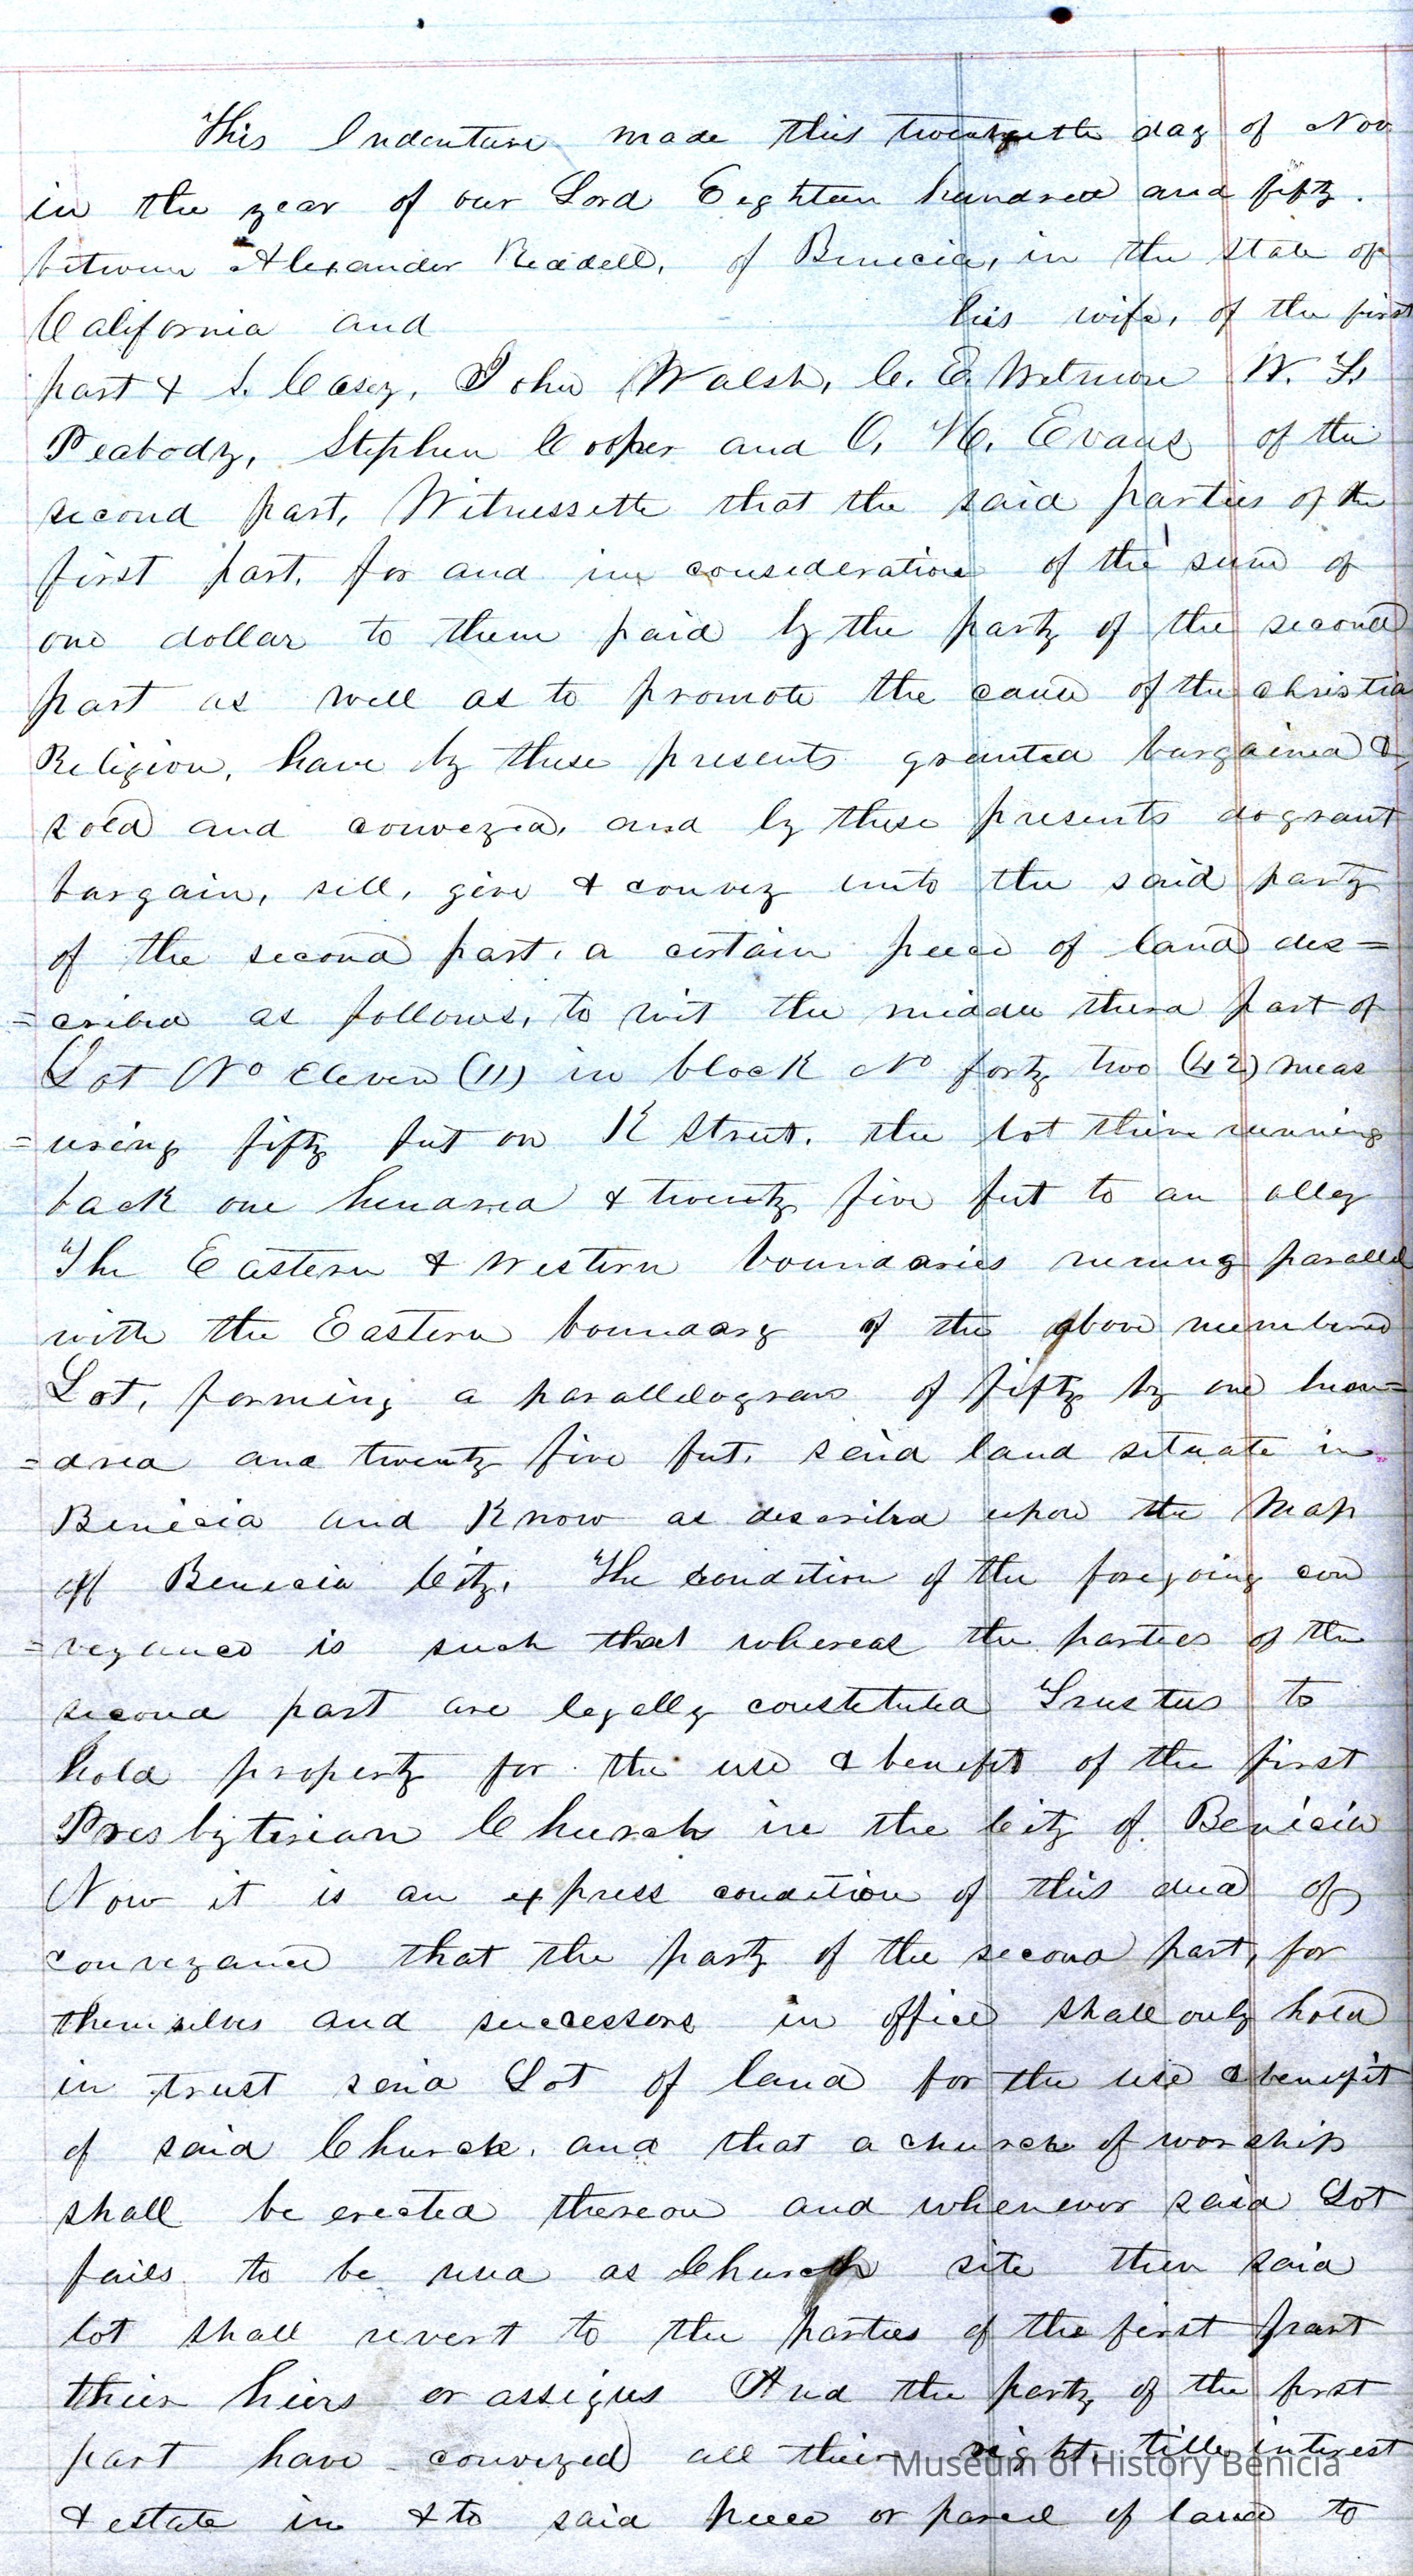 This Indenture made this twentyeth day of Nov
in the year of our Lord Eighteen hundred and fifty.
between Alexander Reddell, of Benicia, in the State of
California and his wife, of the first
part & S. Casey, John Walsh, C. E. Wetmore W. F.
Peabody, Stephen Cooper and O. H. Evans of the
second part, Witnesseth that the said parties of the
first part, for and in consideration of the sum of
one dollar to them paid by the party of the second
part as well as to promote the cause of the christia
Religion, have by these presents granted bargained &
sold and conveyed, and by these presents do grant
bargain, sell, give & convey unto the said party
of the second part, a certain peece of land des=
=cribed as follows, to wit the middle third part of
Lot No Eleven (11) in block No forty two (42) meas
=uring fifty feet on K Street, the lot then running
back one hundred & twenty five feet to an alley
The Eastern & Western boundaries runing parallel
with the Eastern boundary of the above numbered
Lot, forming a parallelogram of fifty by one hun=
=dred and twenty five feet, said land situate in
Benicia and Know as described upon the Map
of Benicia City, The condition of the foregoing con
=veyance is such that whereas the parties of the
second part are legally constituted Trustees to
hold property for the use & benefit of the first
Presbyterian Church in the City of Benicia
Now it is an express condition of this deed of
conveyance that the party of the second part, for
themselves and successors in office shall only hold
in trust said Lot of land for the use & benefit
of said Church, and that a church of worship
shall be erected thereon and whenever said Lot
fails to be used as Church site then said
lot shall revert to the parties of the first part
their heirs or assigns And the party of the first
part have conveyed all their right, title, interest
& estate in & to said peece or parcel of land to
Museum of History Benicia